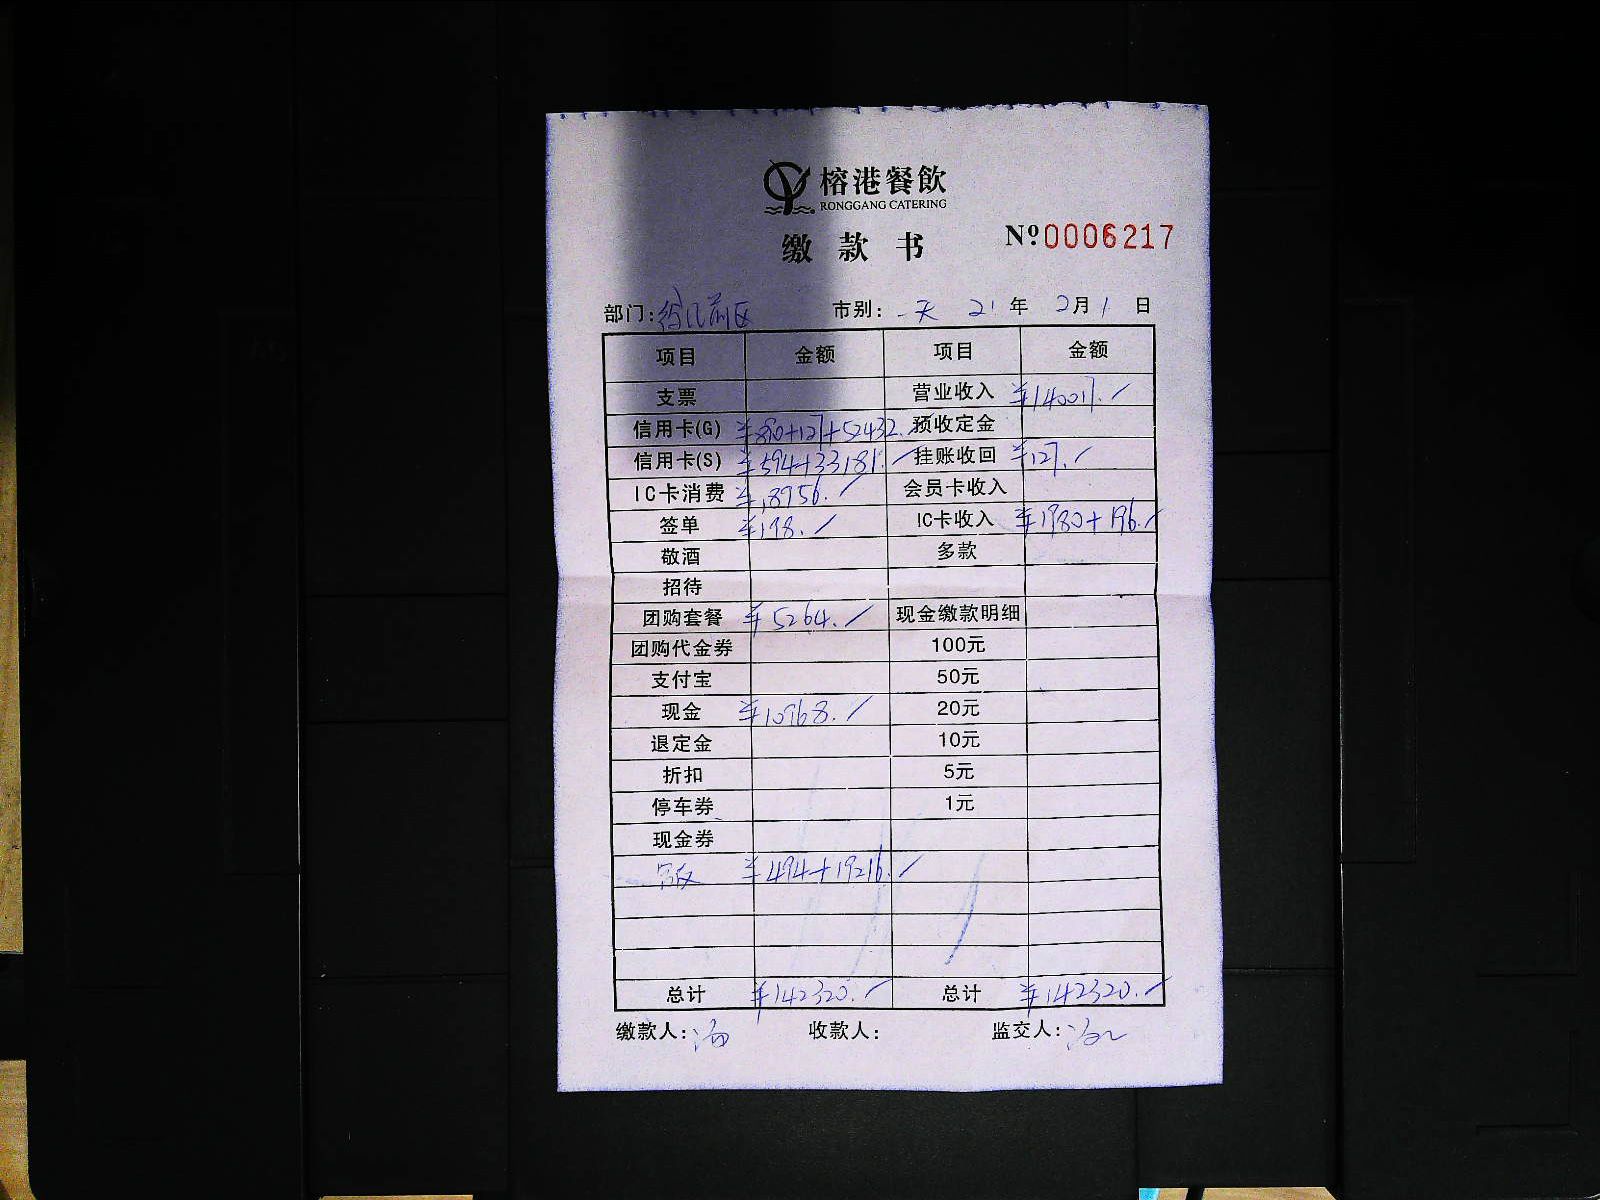 榕港餐飲
RONGGANG CATERING
缴款书 Nº0006217
部门: 市别: 一天 21 年 2月 1 日
项目 金额 项目 金额
支票 营业收入 ¥140017.
信用卡(G) ¥890+127+52432. 预收定金
信用卡(S) ¥594+33181. 挂账收回 ¥127.
IC卡消费 ¥18956. 会员卡收入
签单 ¥198. IC卡收入 ¥1980+196.
敬酒 多款
招待
团购套餐 ¥5264. 现金缴款明细
团购代金券 100元
支付宝 50元
现金 ¥10968. 20元
退定金 10元
折扣 5元
停车券 1元
现金券
¥494+19216.
总计 ¥142320. 总计 ¥142320.
缴款人: 收款人: 监交人: